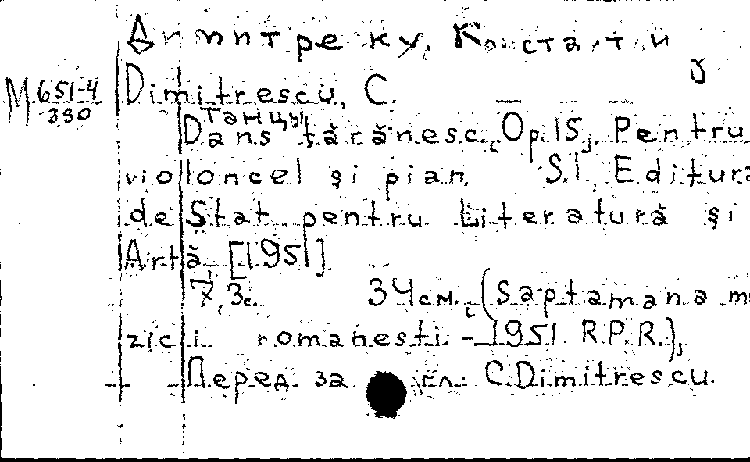 Димитреску, Константин
M 651-4
390
Dimitrescu, C.
танцы
Dans ţărănesc, Op.15, Pentru
violoncel şi pian. S.l. Editura
de Stat pentru Literatură şi
Artă, [1951]
7,3с. 34см. (Saptamana mu
zicii romanesti - 1951 R.P.R.),
Перед. за C.Dimitrescu.